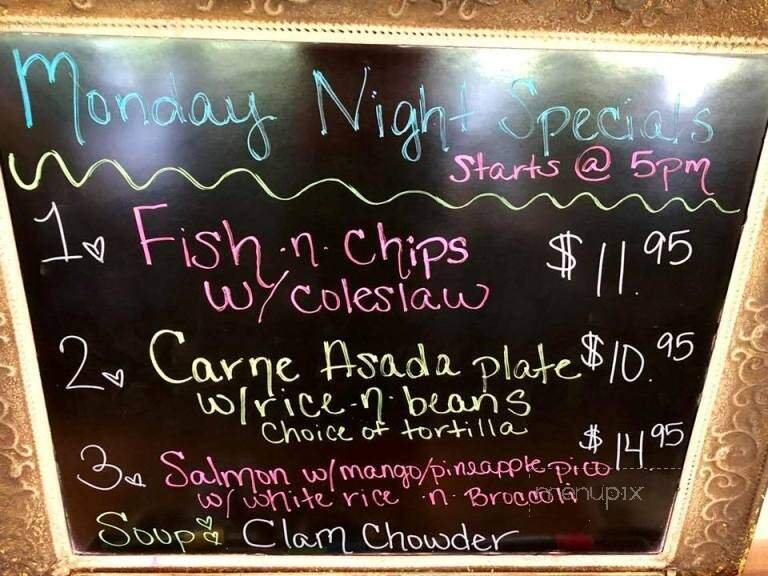 Monday Night Specials
Starts @ 5pm
1. Fish n. Chips $11.95
w/coleslaw
2. Carne Asada plate $10.95
w/rice-n-beans
Choice of tortilla
3. Salmon w/mango/pineapple pico $14.95
w/ white rice n. Broccoli
menupix
Soup: Clam Chowder